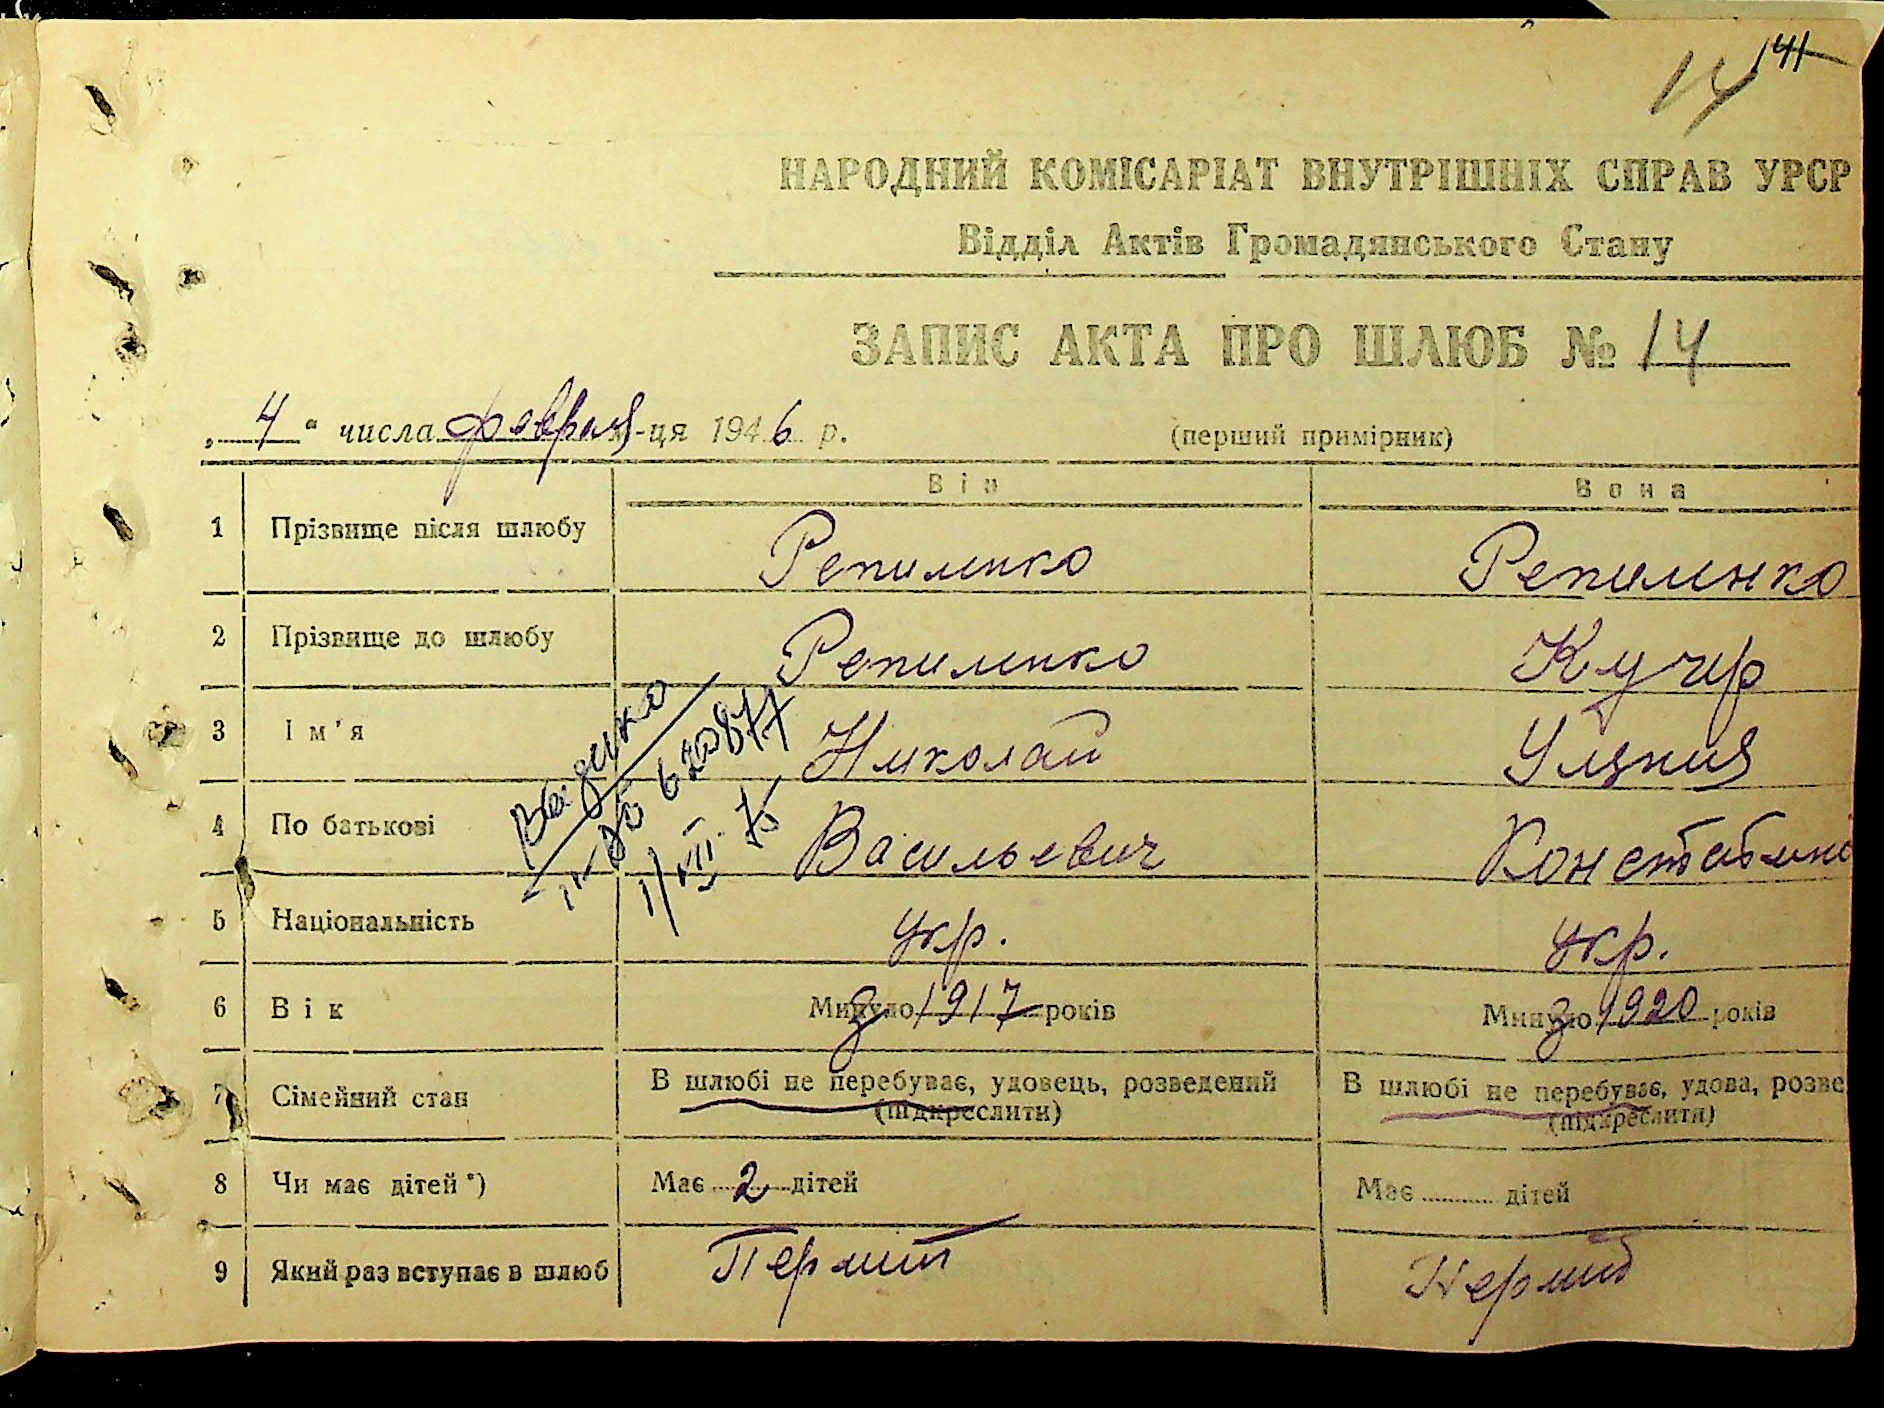 141
14
НАРОДНИЙ КОМІСАРІАТ ВНУТРІШНІХ СПРАВ УРСР
Відділ Актів Громадянського Стану
ЗАПИС АКТА ПРО ШЛЮБ № 14
„ 4 “ числа февраля м-ця 1946 р. (перший примірник)
Він Вона
1 Прізвище після шлюбу Репиленко Репиленко
2 Прізвище до шлюбу Репиленко Кучер
3 Ім'я Николай Уляния
4 По батькові Васильевич Констатино
5 Національність укр. укр.
6 Вік Минуло з 1917 років Минуло з 1920 років
7 Сімейний стан В шлюбі не перебуває, удовець, розведений В шлюбі не перебуває, удова, розве
(підкреслити) (підкреслити)
8 Чи має дітей *) Має 2 дітей Має дітей
9 Який раз вступає в шлюб Перший Перший
620877
1/VII 75